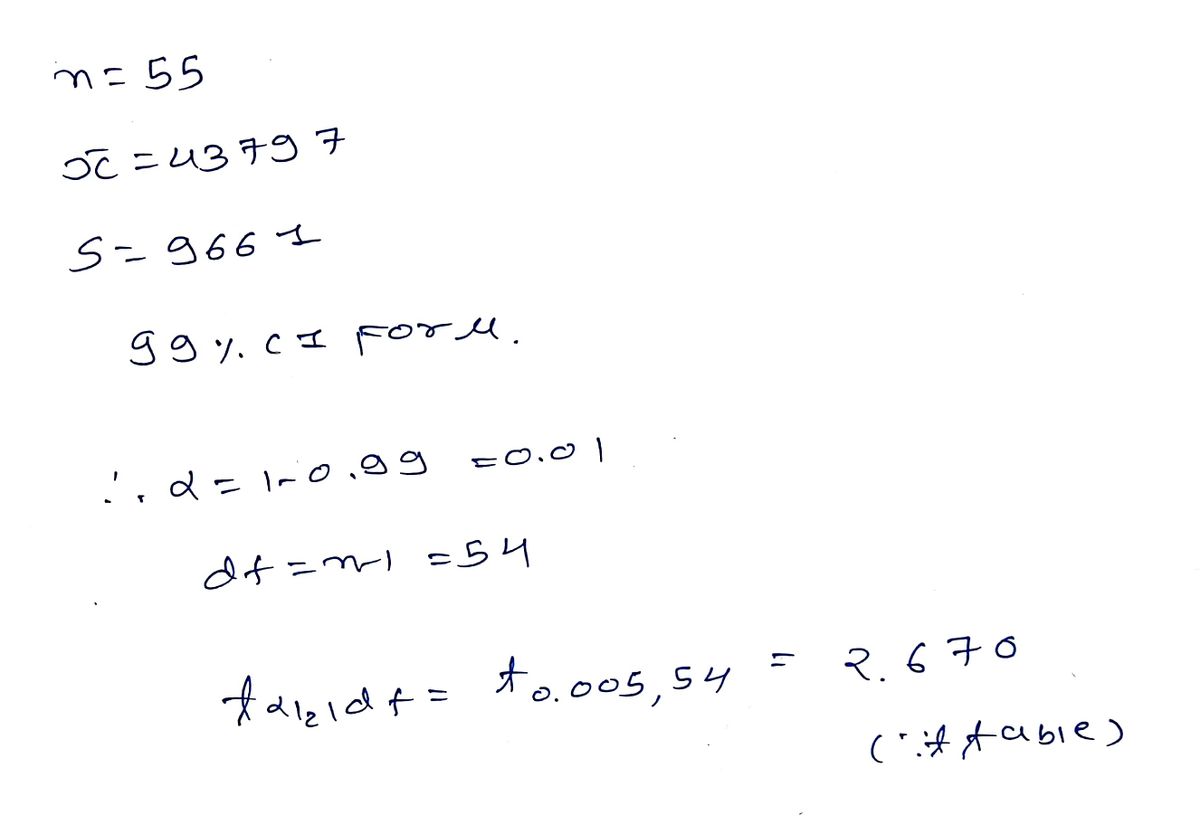 n = 55
x̄ = 43797
S = 9661
99 % CI FOR μ.
∴ α = 1-0.99 = 0.01
df = n-1 = 54
t α/2, df = t 0.005, 54 = 2.670
(∵ t table)